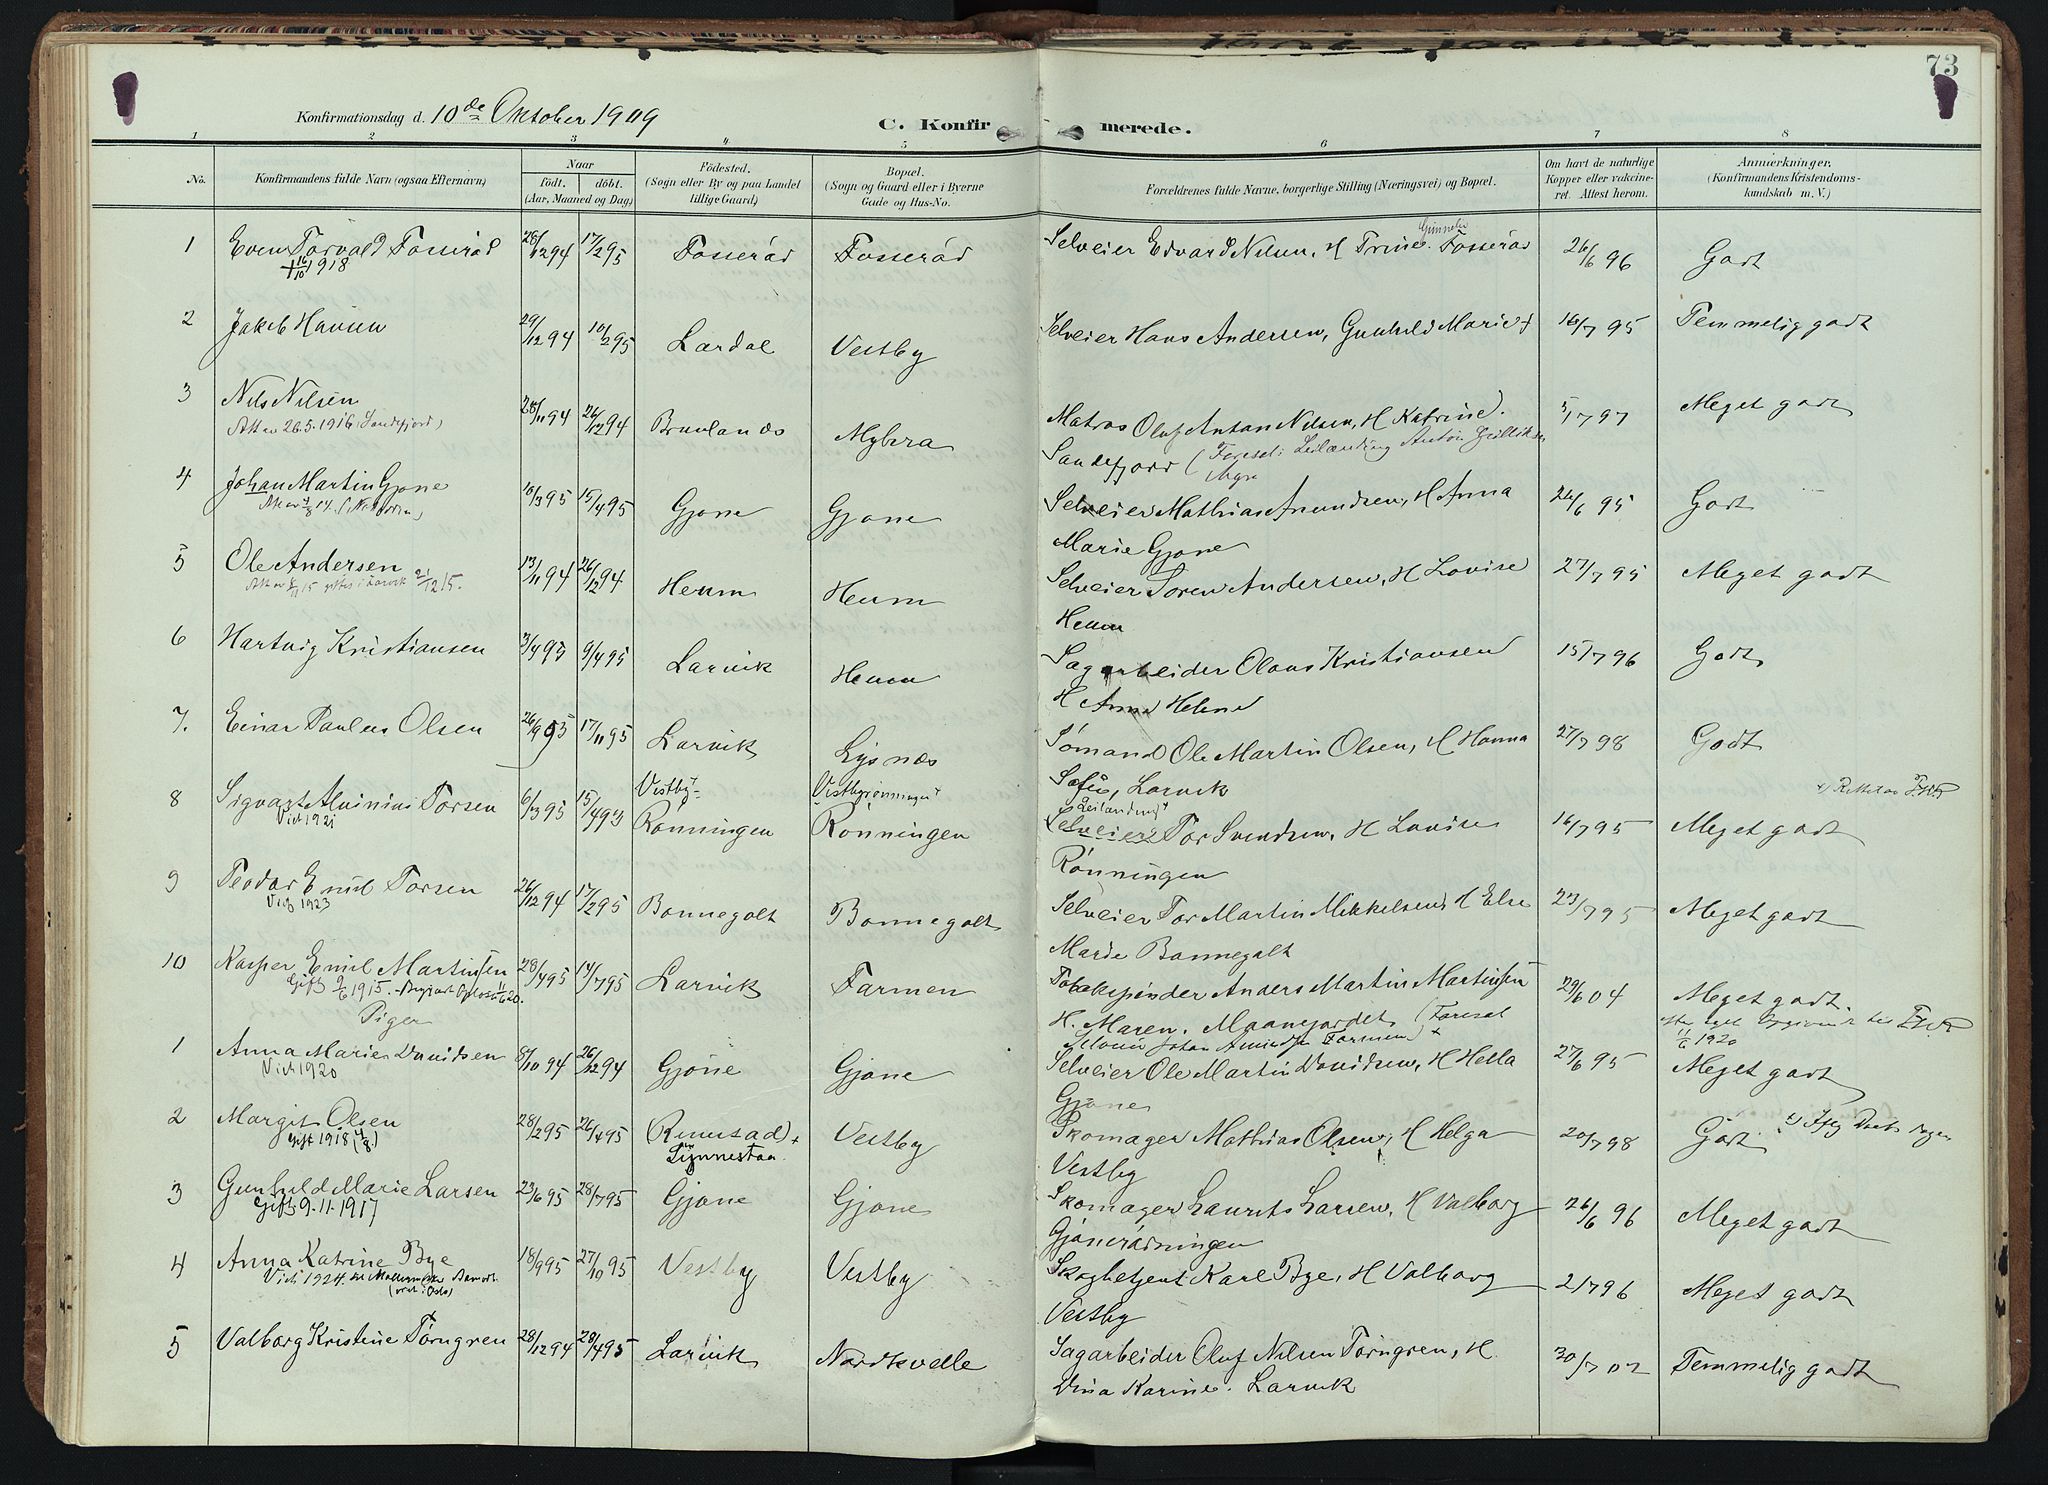 73
Konfirmationsdag d. 10de Oktober 1909
C. Konfirmerede.
1 2 3 4 5 6 7 8
No.
Konfirmandens fulde Navn (ogsaa Efternavn)
Naar
født. døbt.
(Aar, Maaned og Dag)
Födested.
(Sogn eller By og paa Landet tillige Gaard)
Bopæl.
(Sogn og Gaard eller i Byerne Gade og Hus-No.
Forældrenes fulde Navne, borgerlige Stilling (Næringsvei) og Bopæl.
Om havt de naturlige Kopper eller vakcineret. Attest herom.
Anmærkninger.
(Konfirmandens Kristendomskundskab m. V.)
1 Even Torvald Fosserød 28/12 94 17/2 95 Fosserød Fosserød Selveier Edvard Nilsen, H Trine Gunnelie Fosserød 26/6 96 Godt
+ 16/10 1918
2 Jakob Hansen 29/12 94 10/2 95 Lardal Vestby Selveier Hans Andersen, Gunhild Marie + 16/7 95 Temmelig godt
3 Nils Nilsen 28/11 94 26/12 94 Brunlanes Myhra Matros Oluf Antan Nilsen, H Katrine. 5/7 97 Meget godt
Att av 26.5.1916 (Sandefjord)
Sandefjord (Foresat: Leilænding Anton Gulliksen
Myra
4 Johan Martin Gjone 10/3 95 15/4 95 Gjone Gjone Selveier Mathias Amundsen, H Anna 24/6 95 Godt
Marie Gjone
5 Ole Andersen 13/11 94 26/12 94 Heum Heum Selveier Soren Andersen, H Lovise 27/7 95 Meget godt
Heum
6 Hartvig Kristiansen 3/4 95 9/4 95 Larvik Heum Sagarbeider Olaus Kristiansen 15/7 96 Godt
H Anna Helene
7. Einar Paulus Olsen 26/9 95 17/11 95 Larvik Lysnæs Sømand Ole Martin Olsen, H Hanna 27/7 98 Godt
Sofie, Larvik
8 Sigvart Torsen 6/3 95 15/4 95 Vestby-Ronningen Vestbyrønningen Ronningen Leilænding Selveier Tor Svendsen, H Lovise 16/7 95 Meget godt
Viet 1921
Rønningen
9 Teodor Emil Torsen 26/12 94 17/2 95 Bonnegolt Bonnegolt Selveier Tor Martin Mikkelsen, H Else 23/7 95 Meget godt
Viet 1923
Marie Bonnegolt
10 Kasper Emil Martinsen 28/4 95 14/7 95 Larvik Farmen Tobakspinder Anders Martin Martinsen 29/6 04 Meget godt.
Gift 9/6 1915.
H. Maren, Maanejordet (Foresat
11/6 1920
Piger
1 Anna Marie Davidsen 8/10 94 26/12 94 Gjone Gjone Selveier Ole Martin Davidsen, H Hella 27/6 95 Meget godt
Viet 1920
Gjone
2 Margit Olsen 28/2 95 26/4 95 (Rimstad) + Linnestad Vestby Skomager Mathias Olsen, H Helga 20/7 98 Godt
Gift 1918 (4/8)
Vestby
3 Gunhild Marie Larsen 23/6 95 28/7 95 Gjone Gjone Skomager Laurits Larsen, H Valborg 26/6 96 Meget godt
Gift 9.11.1917
Gjonerødningen
4 Anna Katrine Bye 18/9 95 27/10 95 Vestby Vestby Skogbetjent Karl Bye, H Valborg 2/7 96 Meget godt
Viet 1924
(viet i Oslo)
Vestby
5 Valborg Kristine Törngren 28/12 94 28/4 95 Larvik Nordkvelle Sagarbeider Oluf Nilsen Törngren, H. 30/7 02 Temmelig godt
Vina Karine. Larvik